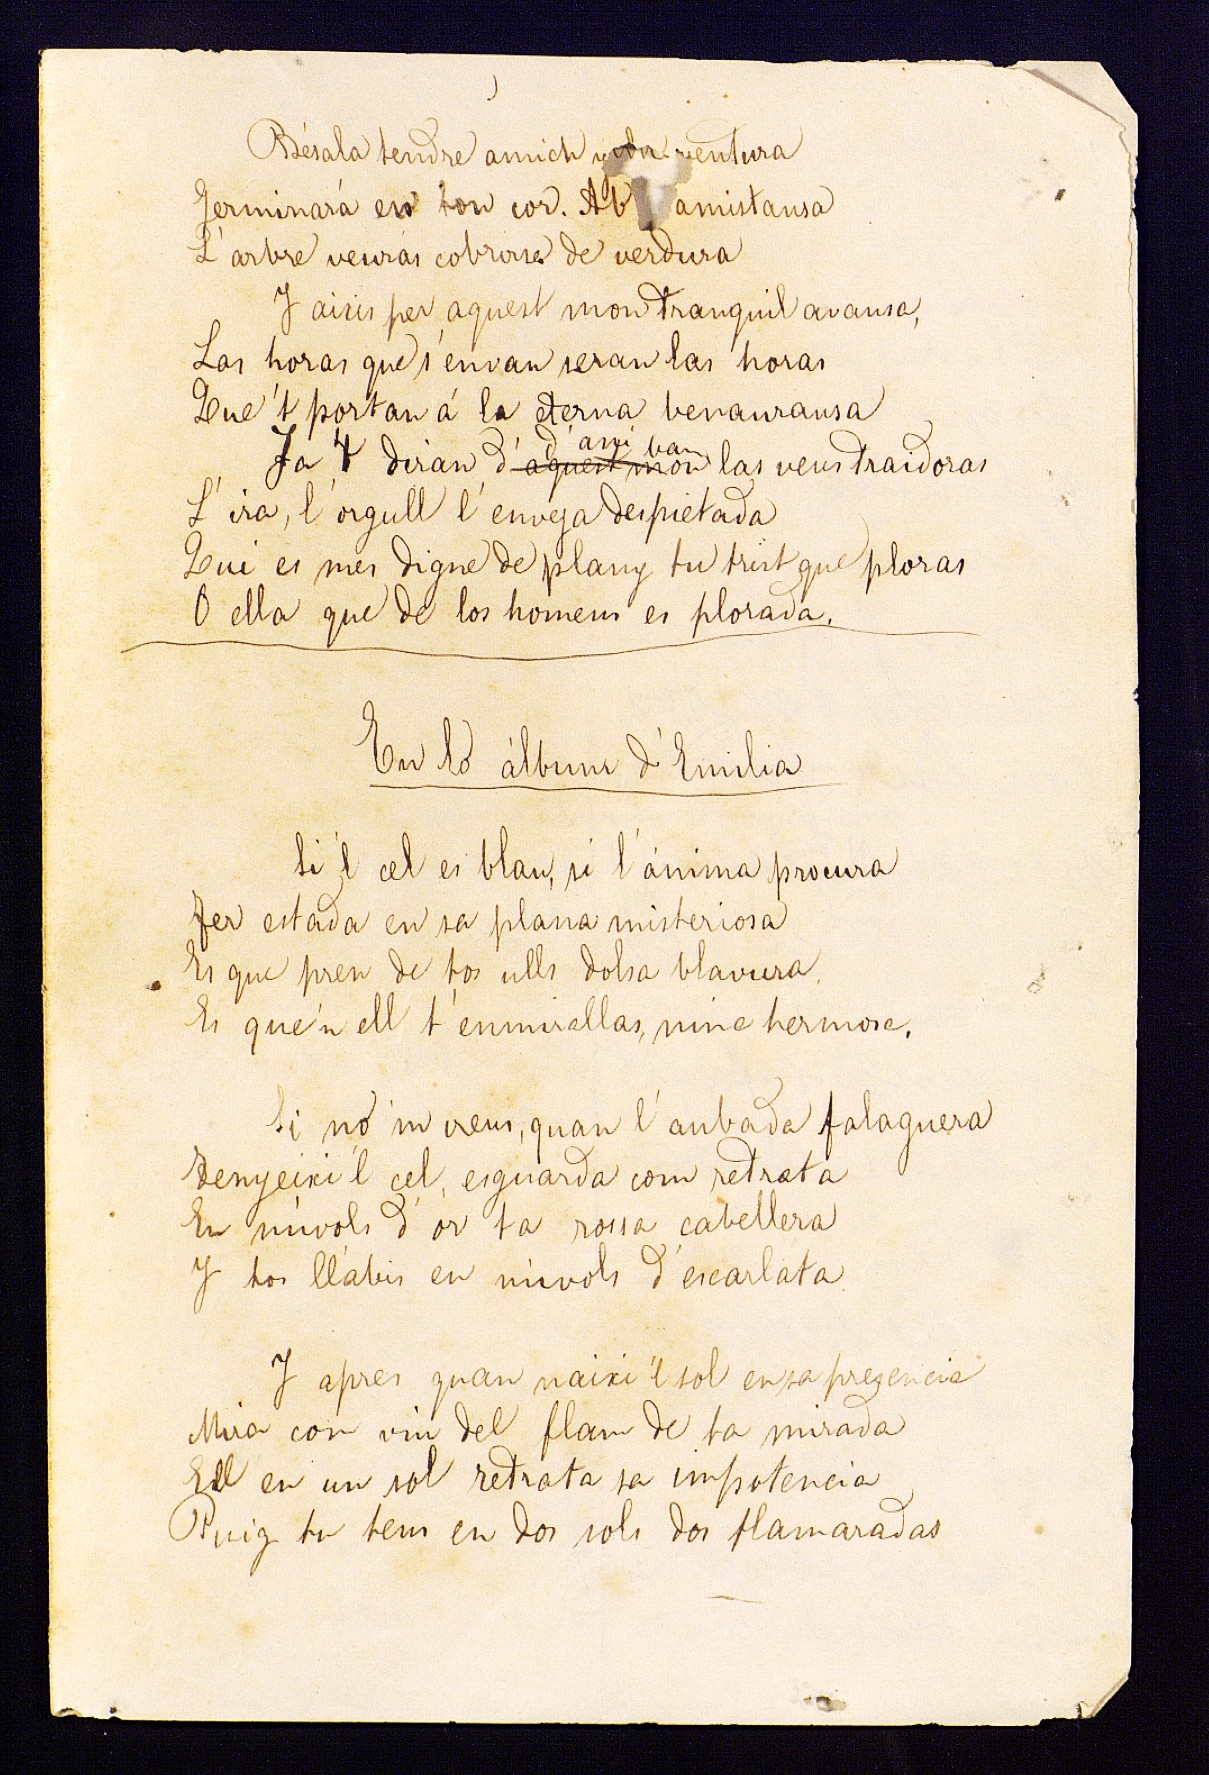 Bésala tendre amich y la ventura
Germinará en ton cor. Ab amistansa
L'arbre veurás cobrirse de verdura
Y aixis per aquest mon tranquil avansa,
Las horas que s'envan seran las horas
Que't portan á la eterna benauransa
Ja't diran d'aquest mon d'aqui van las veus traidoras
L'ira, l'orgull l'enveja despietada
Qui es mes digne de plany tu trist que ploras
O ella que de los homens es plorada.
En lo álbum d'Emilia
Si'l cel es blau, si l'ánima procura
Fer estada en sa plana misteriosa
Es que pren de tos ulls dolsa blavura.
Es que'n ell t'enmirallas, nina hermosa.
Si no'm creus, quan l'aubada falaguera
Renyeixi'l cel, esguarda com retrata
En núvols d'or ta rossa cabellera
Y tos llábis en núvols d'escarlata
Y apres quan naixi'l sol en sa presencia
Mira com viu del flam de ta mirada
Ell en un sol retrata sa impotencia
Puig tu tens en dos sols dos flamaradas